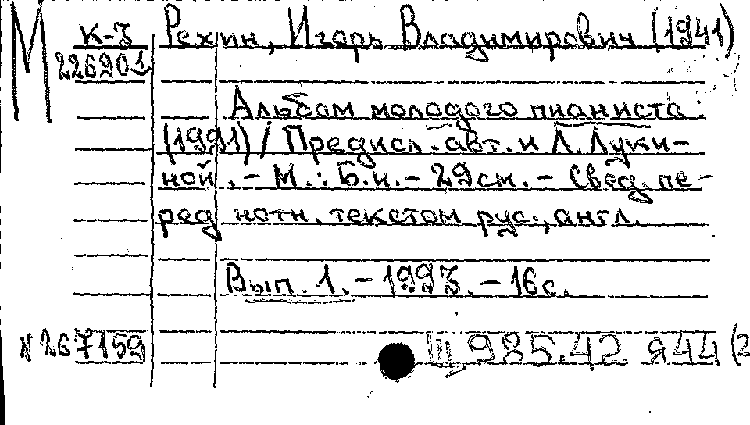 М К-3 Рехин, Игорь Владимирович (1941)
226901
Альбом молодого пианиста
(1991) / Предисл. авт. и Л. Луки-
ной. - М.: Б.и. - 29см. - Свед. пе-
ред нотн. текстом рус., англ.
Вып. 1. - 1993. - 16с.
N 267159 Ш 985.42 Я44 (2